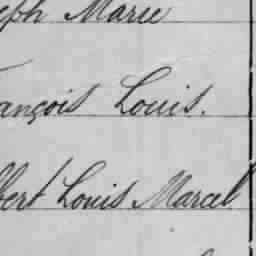 eph Marie
ançois Louis.
bert Louis Marcel